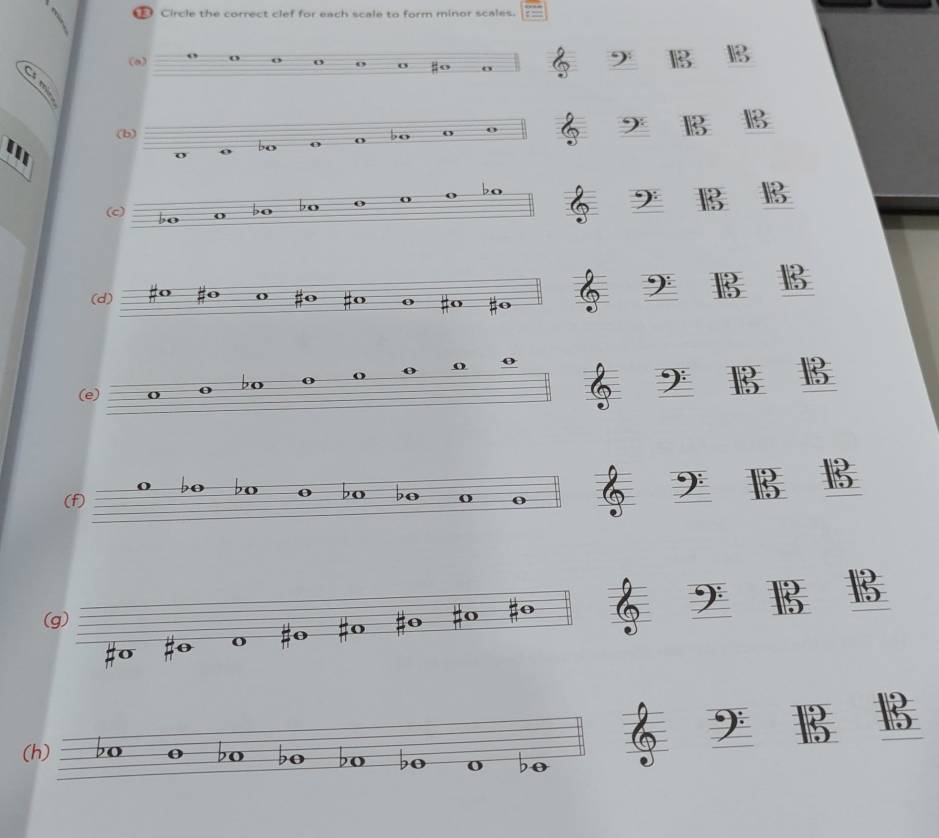 13 Circle the correct clef for each scale to form minor scales.
(a)
(b)
(c)
(d)
(e)
(f)
(g)
(h)